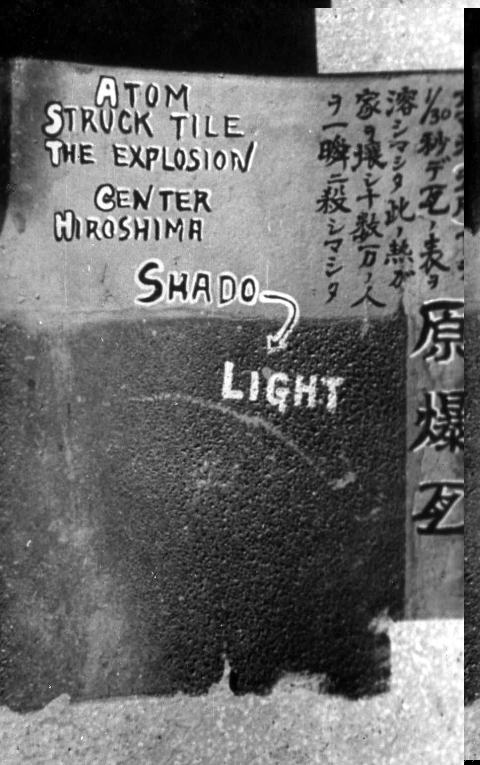 ATOM
STRUCK TILE
THE EXPLOSION
CENTER
HIROSHIMA
SHADO
LIGHT
1/30秒デ瓦ノ表ヲ
溶シマシタ此ノ熱ガ
家ヲ壊シ十数万ノ人
ヲ一瞬ニ殺シマシタ
原爆瓦